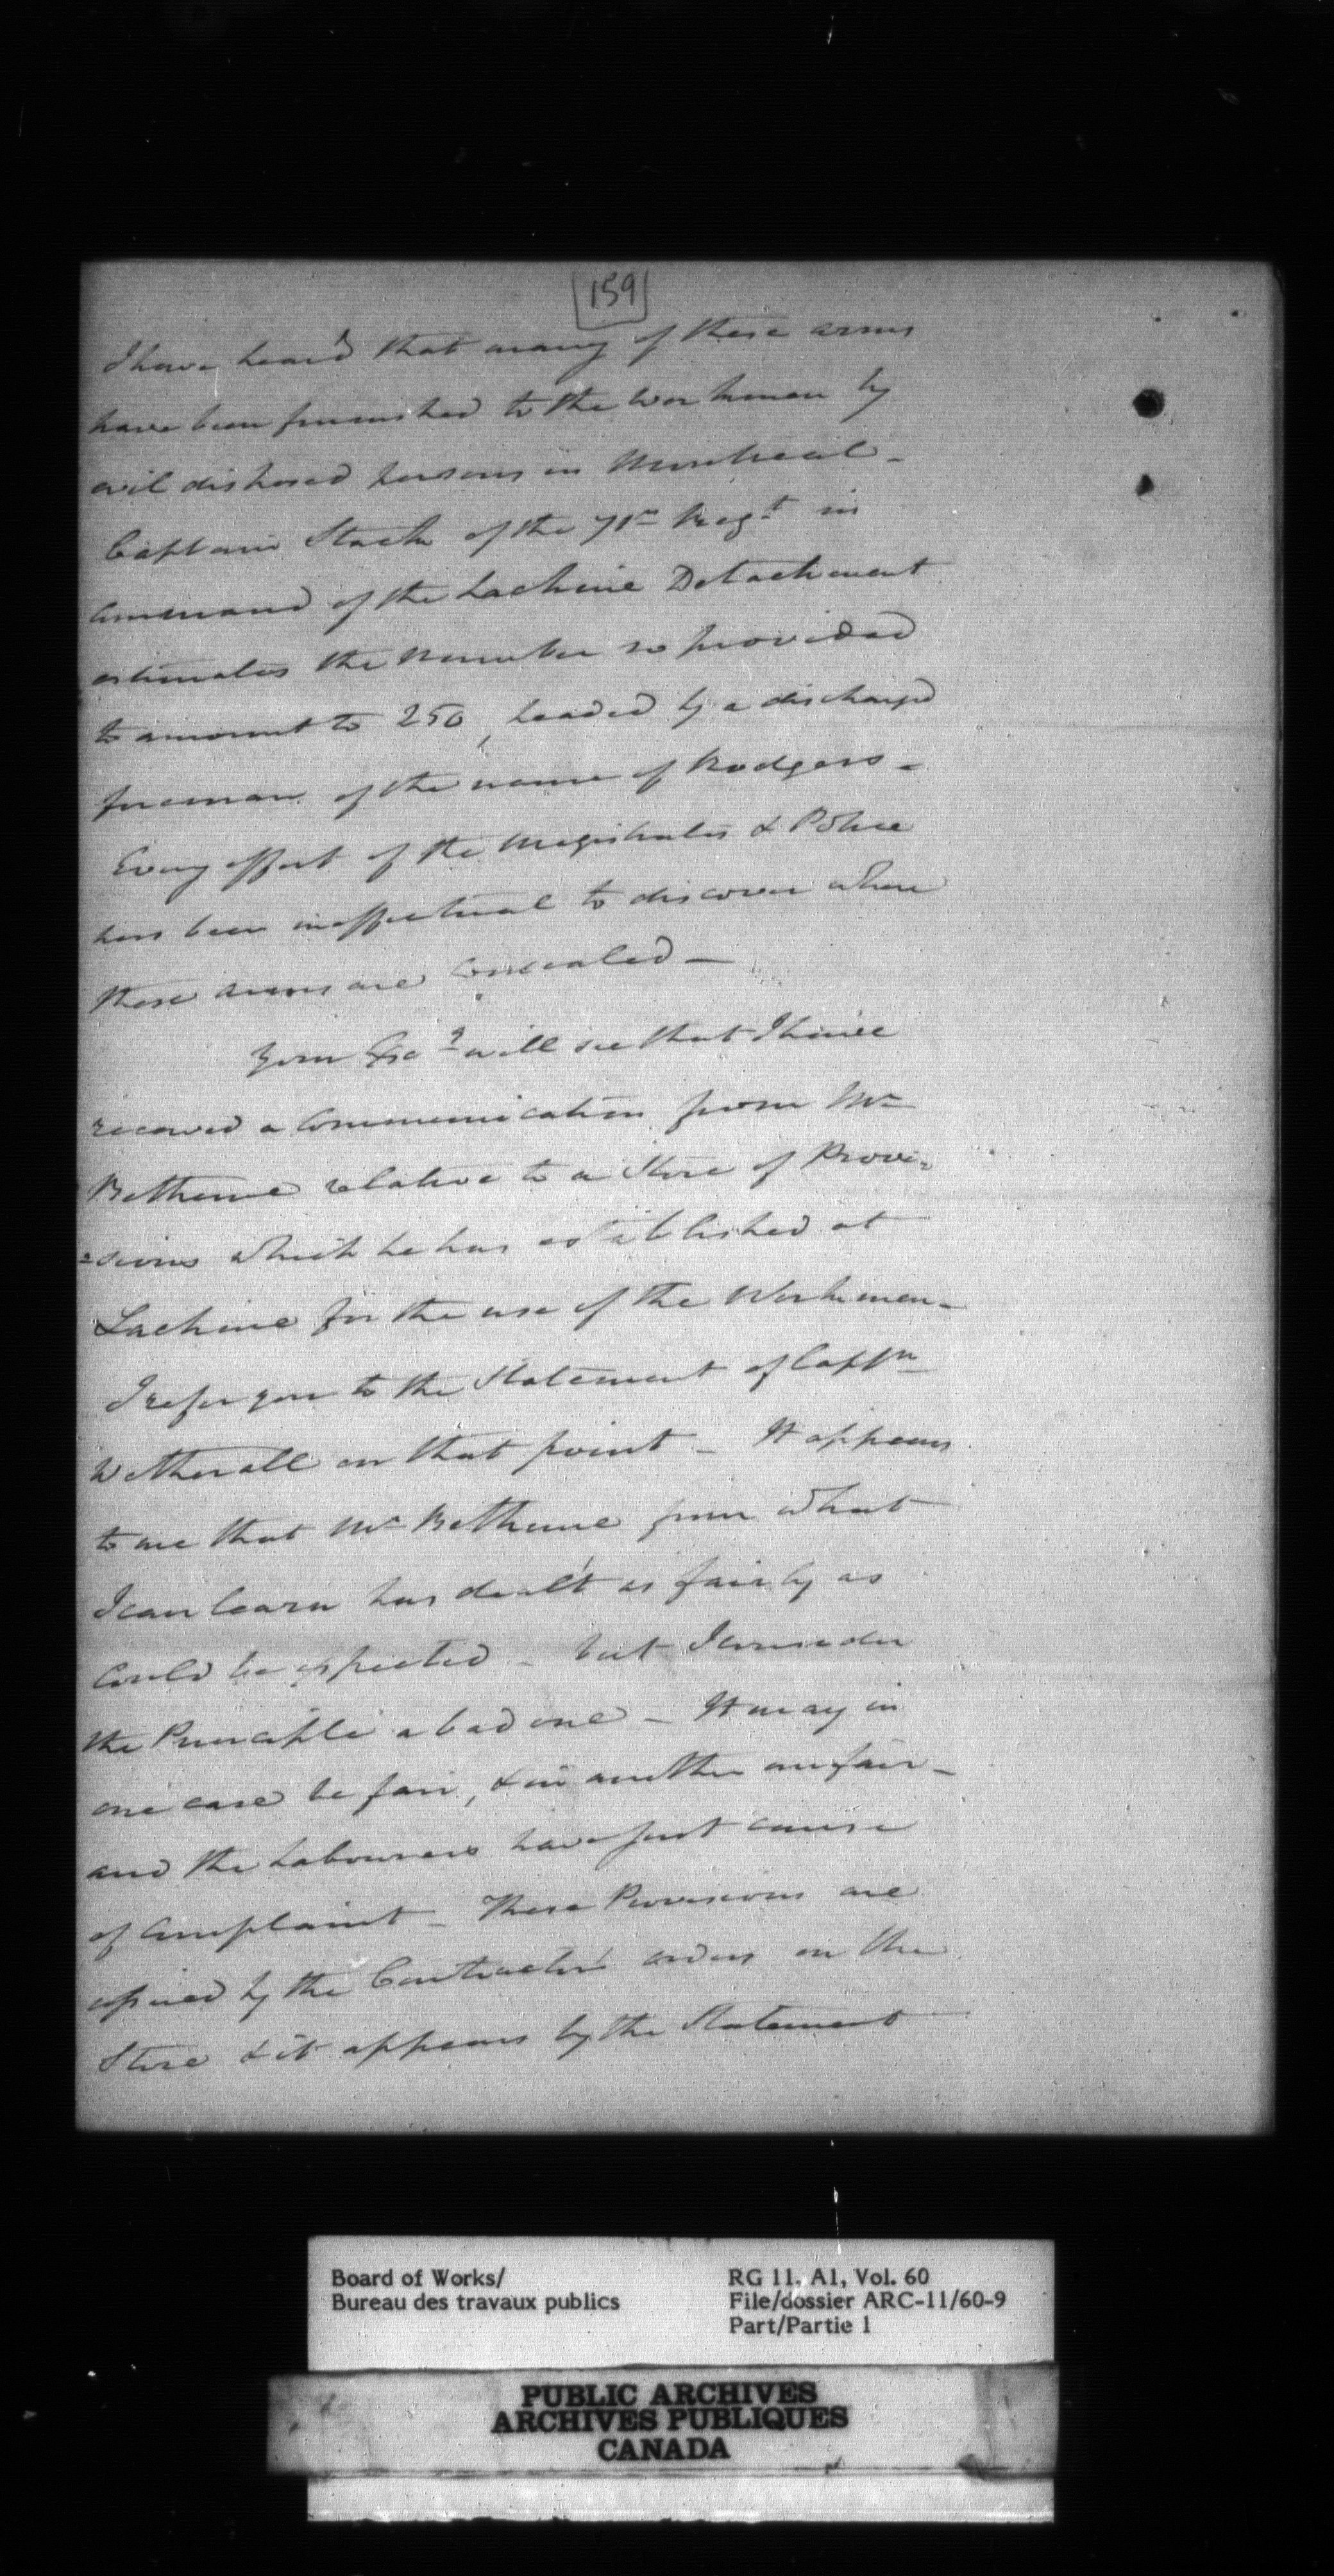 159
I have heard that many of these arms
have been furnished to the workmen by
evil disposed persons in Montreal -
Captain Stack of the 71st Regt in
Command of the Lachine Detachment
estimates the Number so provided
to amount to 250, headed by a discharged
foreman of the name of Rodgers -
Every effort of the Magistrates & Police
has been ineffectual to discover where
these arms are concealed -
Your Exy will see that I have
received a Communication from Mr
Bethune relative to a Store of Provi=
=sions which he has established at
Lachine for the use of the Workmen -
I refer you to the Statement of Captn
Wetherall on that point - It appears
to me that Mr Bethune from what
I can learn has dealt as fairly as
could be expected - but I consider
the Principle a bad one - It may in
one case be fair, & in another unfair -
and the Labourers have just cause
of Complaint - These Provisions are
by the Contractors orders on the
Store & it appears by the Statement
Board of Works/
Bureau des travaux publics
RG 11, A1, Vol. 60
File/dossier ARC-11/60-9
Part/Partie 1
PUBLIC ARCHIVES
ARCHIVES PUBLIQUES
CANADA